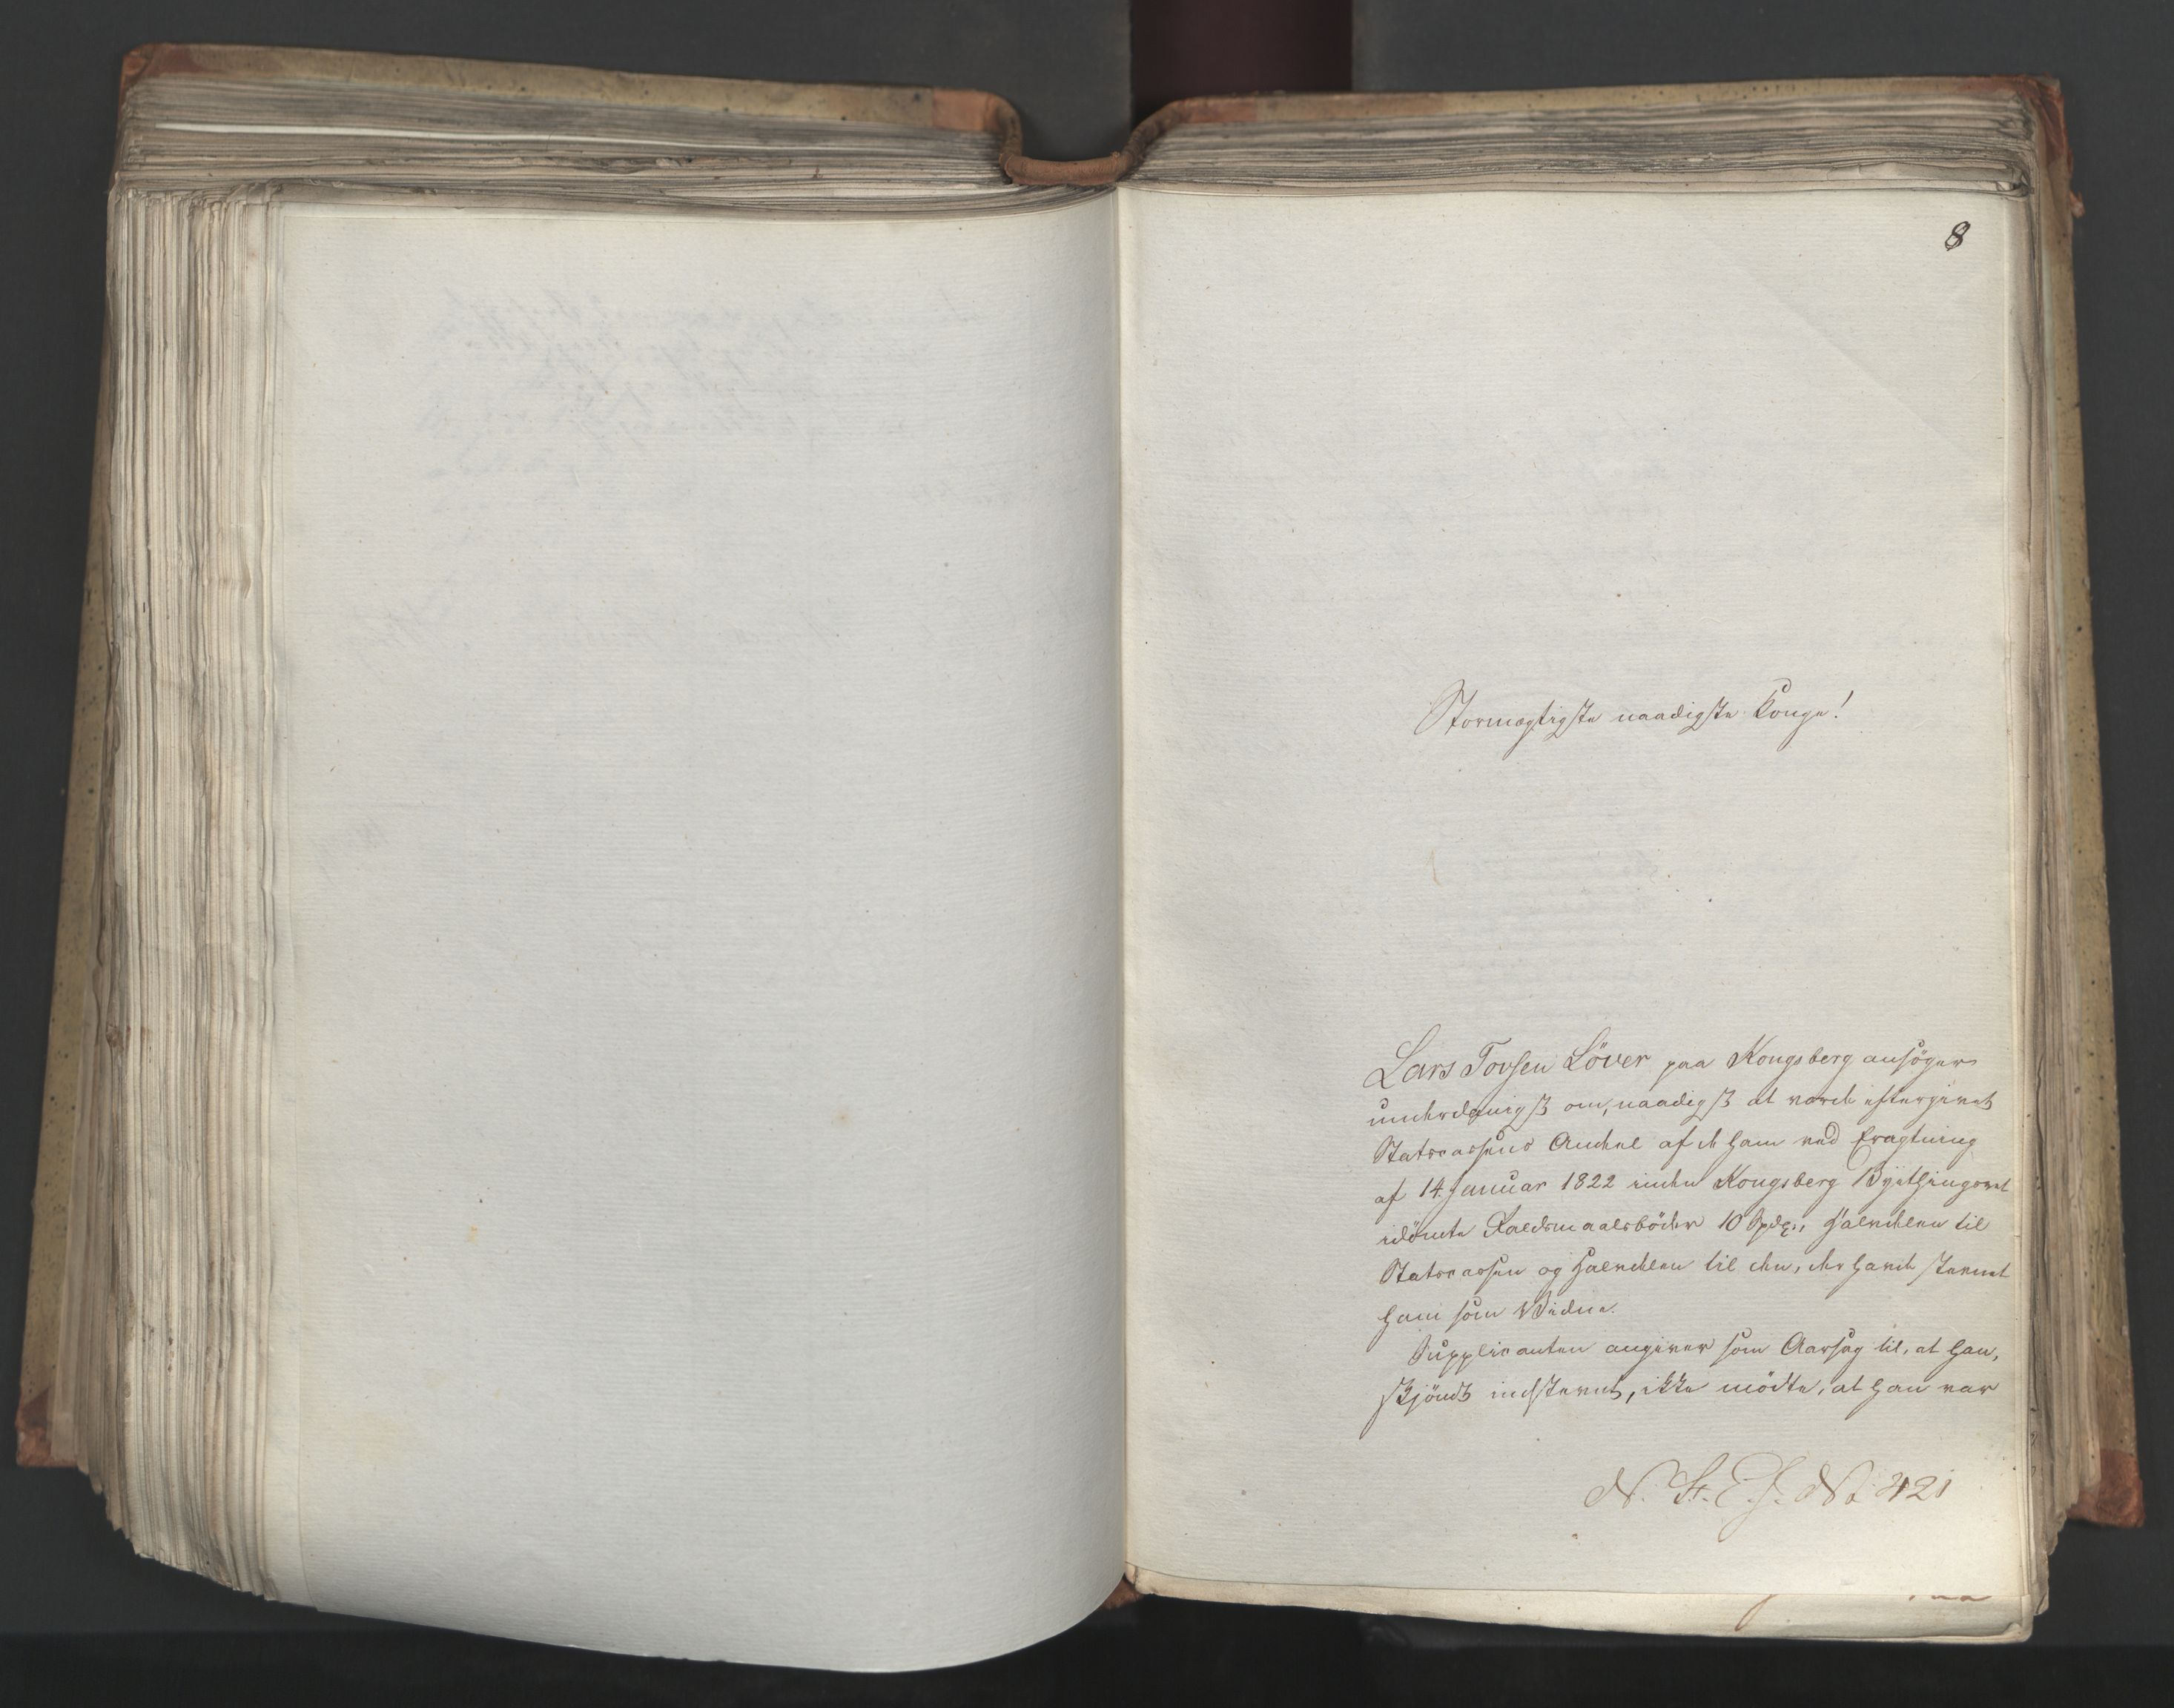 8
Stormægtigste naadigste Konge!
Lars Torsen Löver paa Kongsberg ansöger
underdanigst om, naadigst at vorde eftergivet
Statscassens Andeel af de ham ved Fragtning
af 14 Januar 1822 inden Kongsberg Byethingsret
idömte Faldsmaalsböder 10 Spd., Halvdelen til
Statscassen og Halvdelen til den, der havde stevnet
ham som Vidne.
Supplicanten angiver som Aarsag til, at han,
skjöndt indstevnet, ikke mödte, at han var
N. St. E. J. No 421